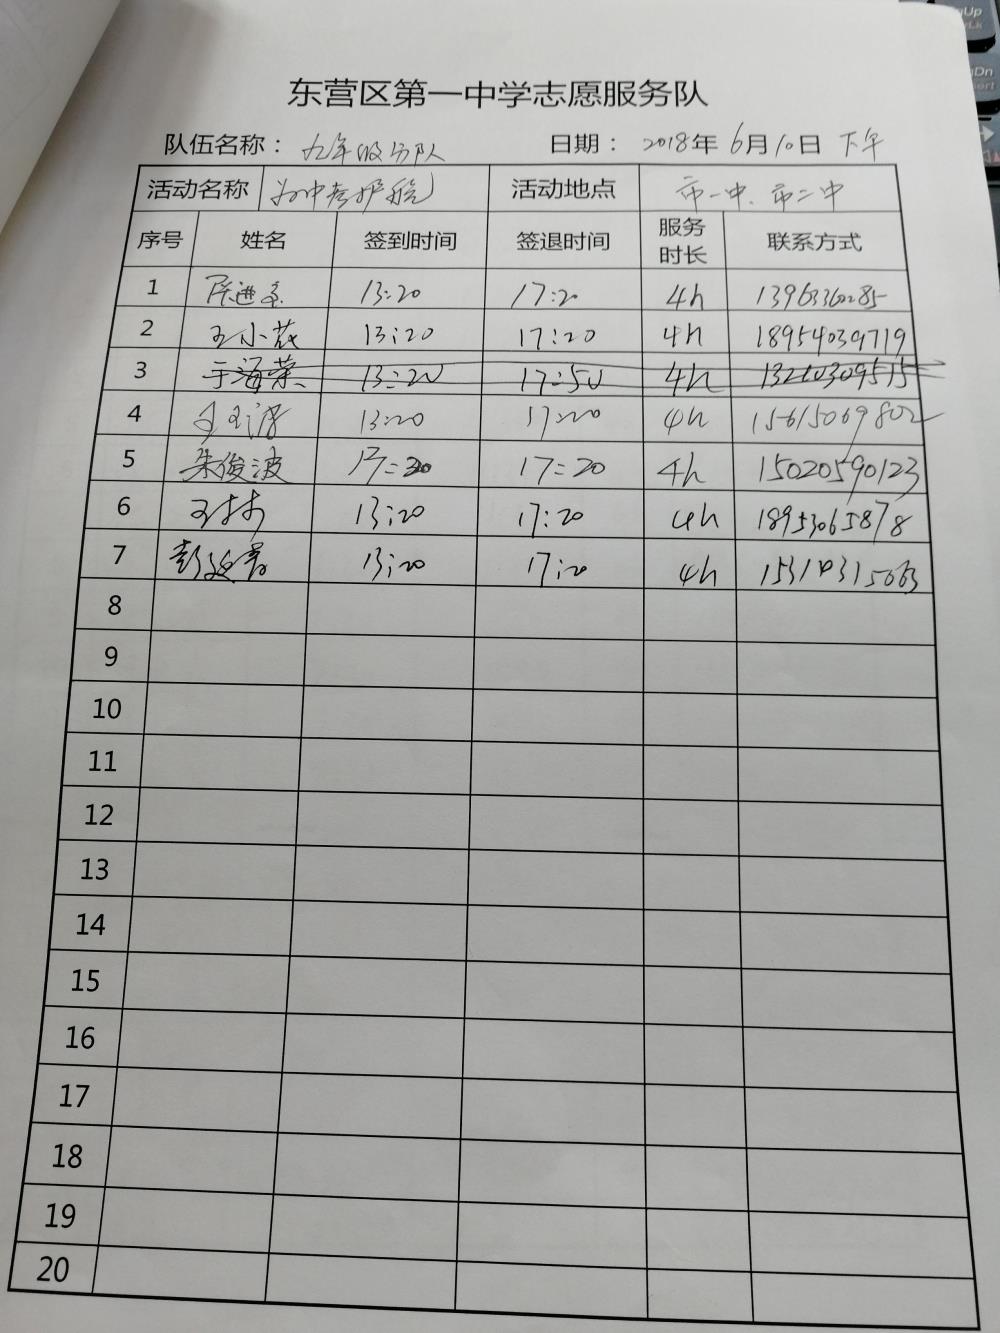 东营区第一中学志愿服务队
队伍名称： 九年级分队 日期： 2018年 6月10日 下午
活动名称 为中考护航 活动地点 市一中、市二中
序号 姓名 签到时间 签退时间 服务时长 联系方式
1 13:20 17:20 4h 13963360285
2 王小花 13:20 17:20 4h 18954039719
3 于海荣 13:20 17:50 4h
4 13:20 17:20 4h 15615069802
5 朱俊波 17:20 4h 15020590123
6 13:20 17:20 4h 18953065878
7 13:20 17:20 4h
8
9
10
11
12
13
14
15
16
17
18
19
20